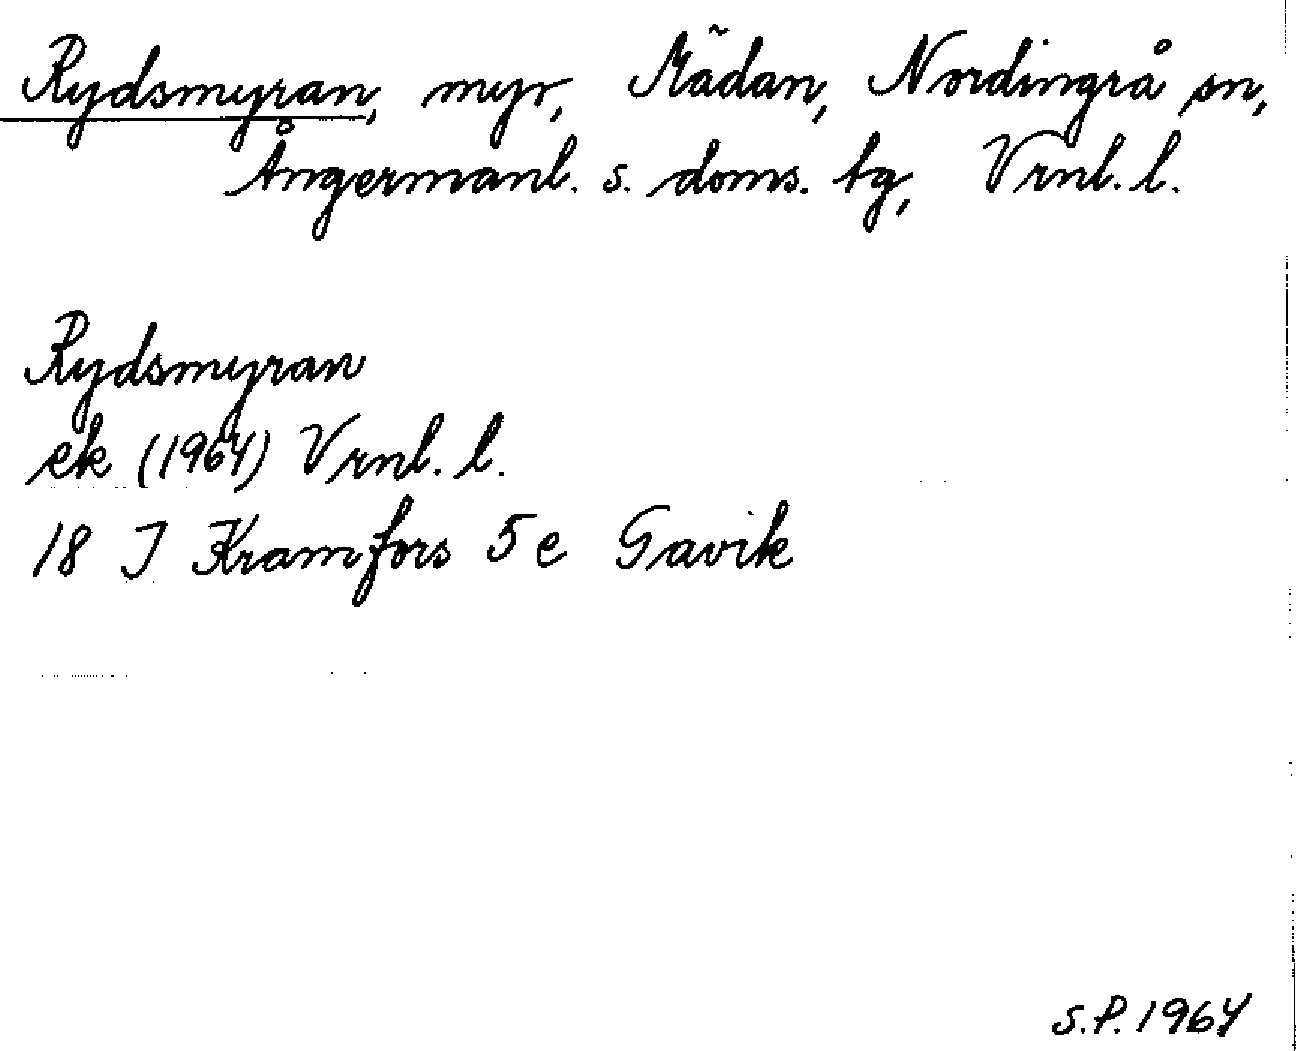 Rydsmyran, myr, Mädan, Nordingrå sn,
Ångermanl. s. doms. tg, Vrnl. l.
Rydsmyran
ek (1964) Vrnl. l.
18 I Kramfors 5 e Gavik
S.P. 1964